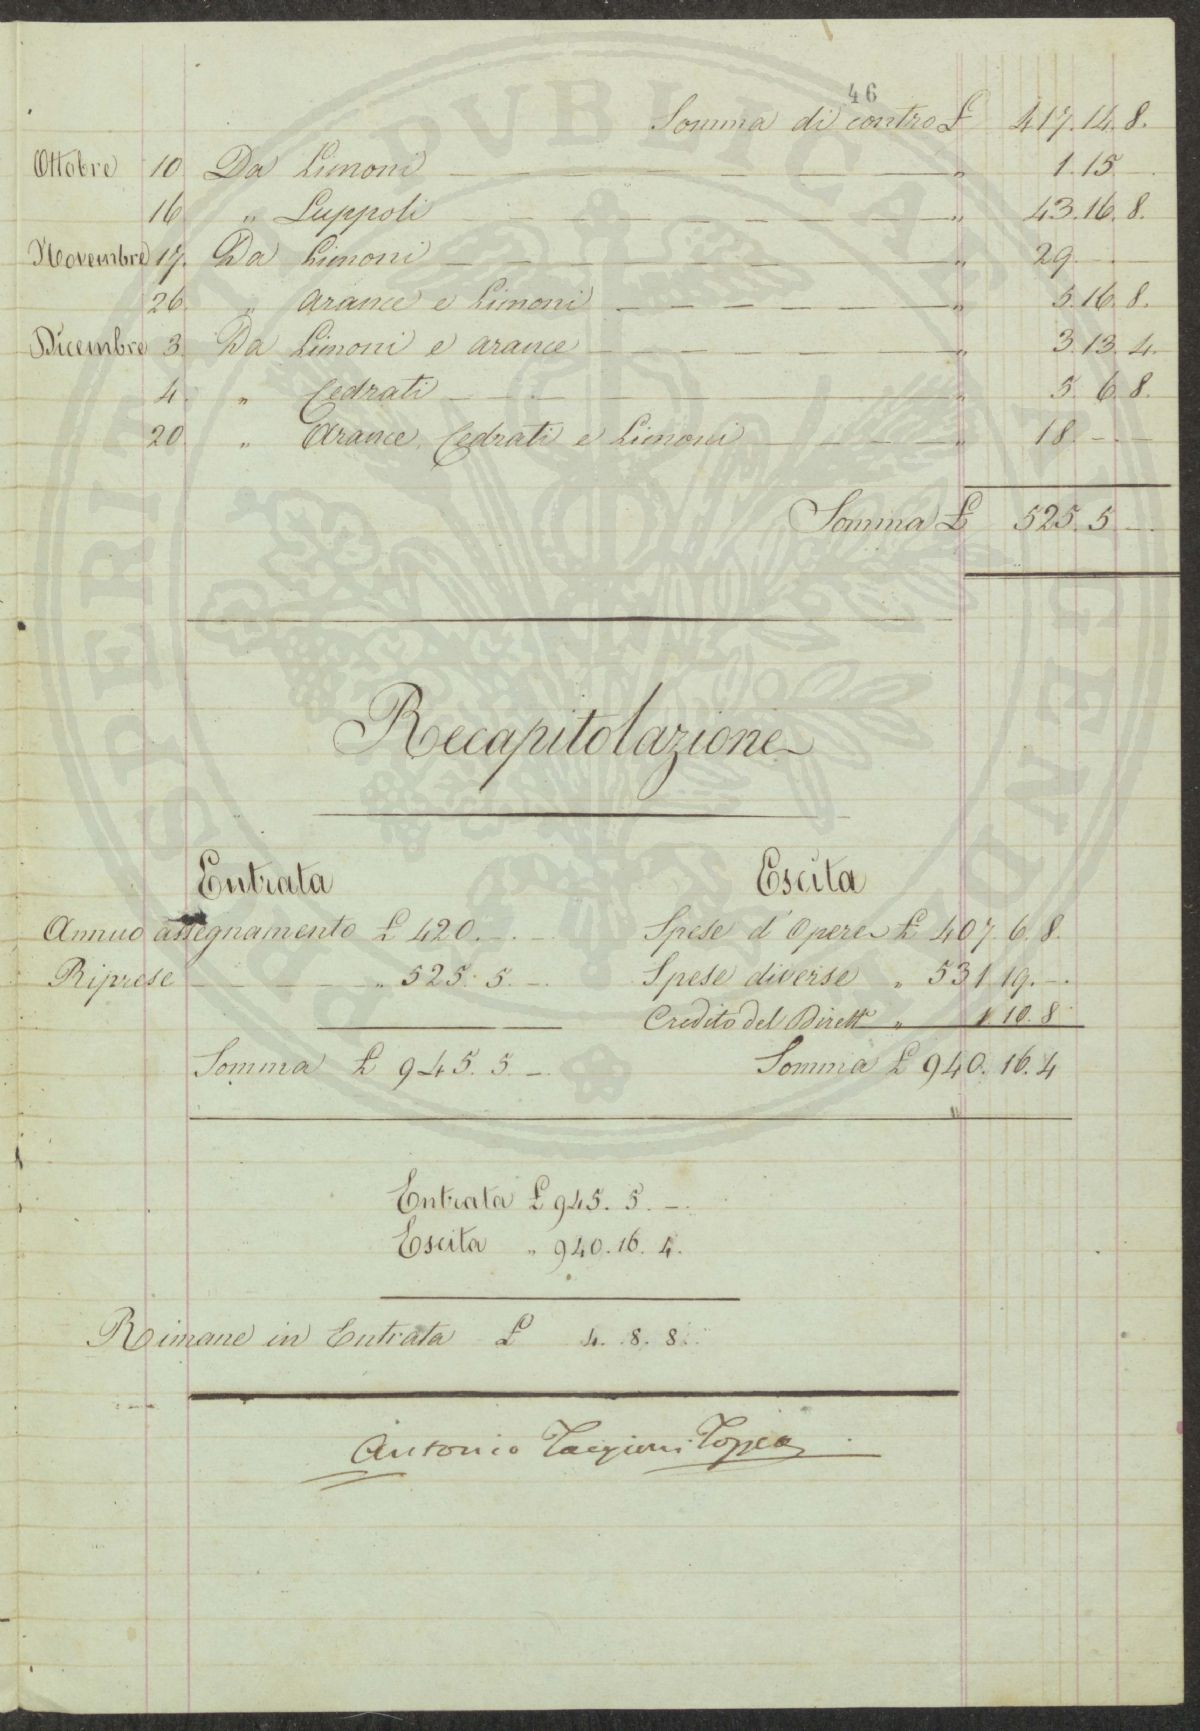 46
Somma di contro £ 417.14.8.
Ottobre 10 Da Limoni — — — — — — " 1.15 —.
16 " Luppoli — — — — — — " 43.16.8.
Novembre 17. Da Limoni — — — — — — " 29 — —
26. " Arance e Limoni — — — — — " 5.16.8.
Dicembre 3. Da Limoni e arance — — — — — " 3.13.4.
4. " Cedrati — — — — — " 5.6.8.
20. " Arance, Cedrati e Limoni — — — — " 18 — —
Somma £ 525.5 —.
Recapitolazione
Entrata
Annuo assegnamento £ 420. —. —
Riprese — — — — " 525. 5. —.
Somma £ 945. 5. —.
Escita
Spese d'Opere £ 407. 6. 8.
Spese diverse " 531 19. —.
Credito del Dirett.e " 1. 10. 8
Somma £ 940. 16. 4
Entrata £ 945. 5. —.
Escita " 940. 16. 4.
Rimane in Entrata £ 4. 8. 8.
Antonio Targioni Tozzetti
PROSPERITATI PUBLICAE AUGENDAE